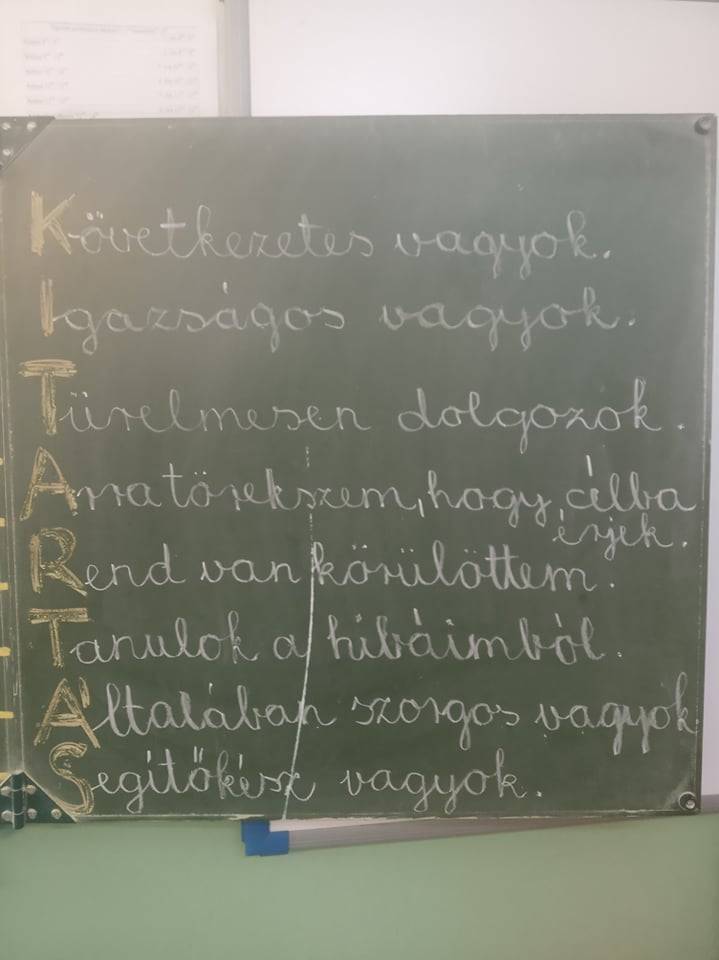 Következetes vagyok.
Igazságos vagyok.
Türelmesen dolgozok.
Arra törekszem, hogy célba
érjek.
Rend van körülöttem.
Tanulok a hibáimból.
Általában szorgos vagyok
Segítőkész vagyok.